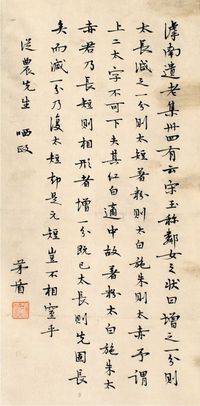 滹南遺老集卅四有云宋玉称鄰女之状曰增之一分則
太長減之一分則太短著粉則太白施朱則太赤予謂
上二太字不可下夫其紅白適中故著粉太白施朱太
赤若乃長短則相形者增一分既已太長則先固長
矣而減一分乃復太短却是元短豈不相窒乎
從農先生 哂政
茅盾